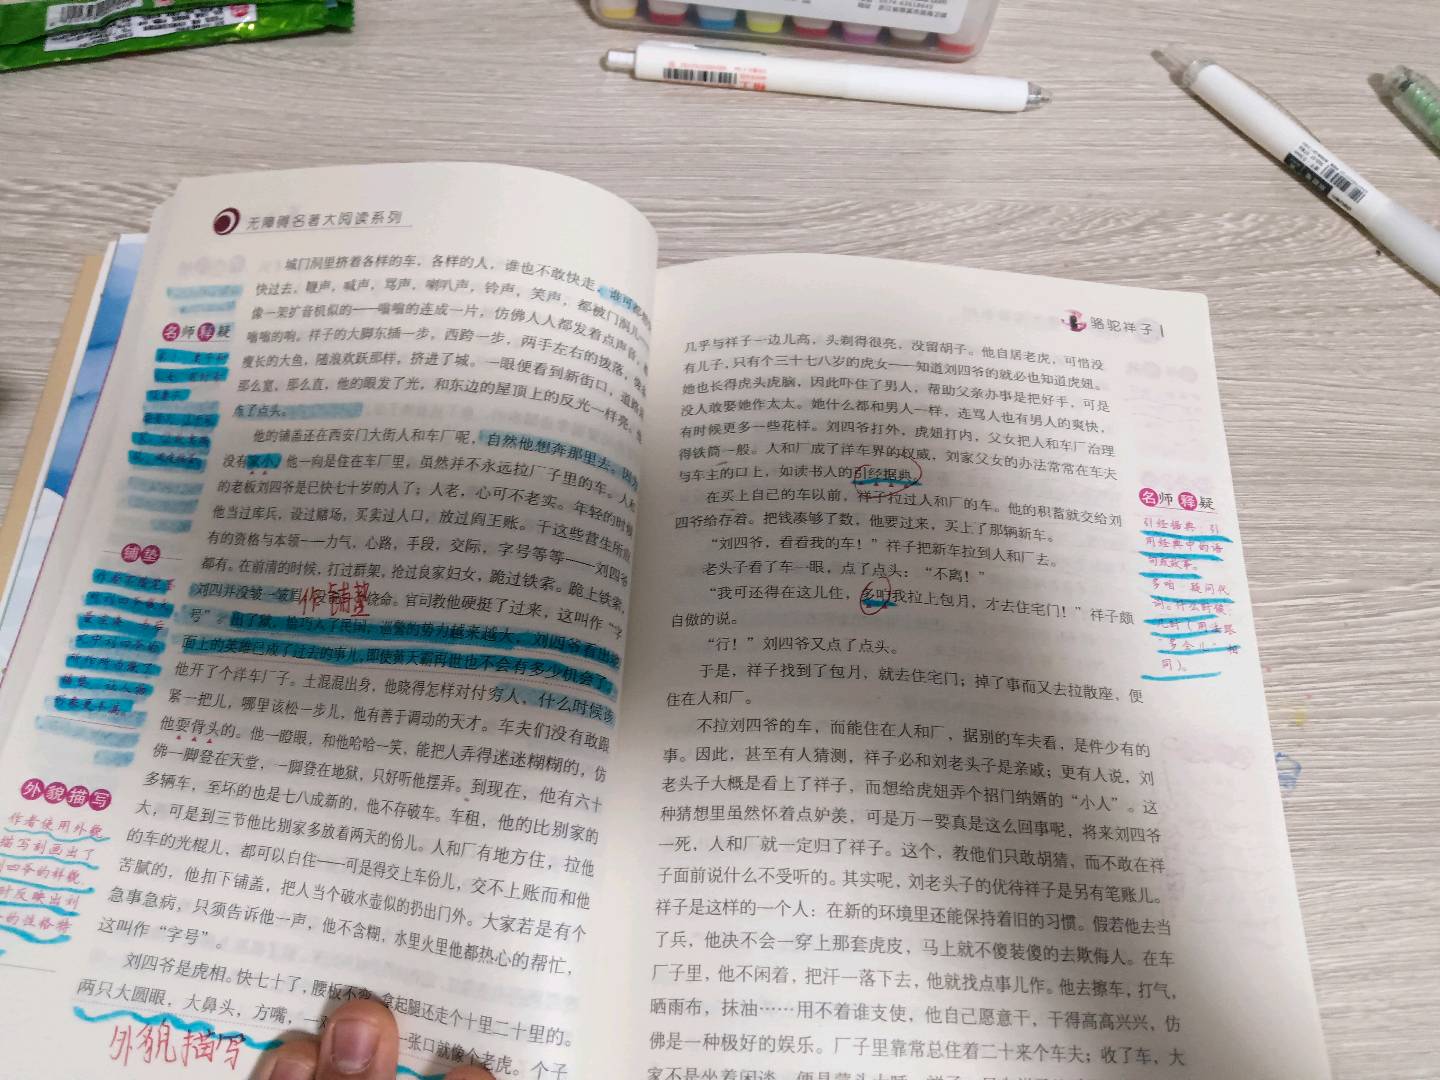 无障碍名著大阅读系列
城门洞里挤着各样的车，各样的人，谁也不敢快走，谁可都
快过去，鞭声，喊声，骂声，喇叭声，铃声，笑声，都被门洞儿
像一架扩音机似的——嗡嗡的连成一片，仿佛人人都发着点声音，
嗡嗡的响。祥子的大脚东插一步，西跨一步，两手左右的拨落，像
瘦长的大鱼，随浪欢跃那样，挤进了城。一眼便看到新街口，道路
那么宽，那么直，他的眼发了光，和东边的屋顶上的反光一样亮。他
点了点头。
他的铺盖还在西安门大街人和车厂呢，自然他想奔那里去。因为
没有家小，他一向是住在车厂里，虽然并不永远拉厂子里的车。人和
的老板刘四爷是已快七十岁的人了；人老，心可不老实。年轻的时候
他当过库兵，设过赌场，买卖过人口，放过阎王账。干这些营生所
有的资格与本领——力气，心路，手段，交际，字号等等——刘四爷
都有。在前清的时候，打过群架，抢过良家妇女，跪过铁索。跪上铁索，
刘四并没皱一皱眉，没 饶命。官司教他硬挺了过来，这叫作“字
作铺垫
号”。出了狱，恰巧入了民国，巡警的势力越来越大，刘四爷看出地
面上的英雄已成了过去的事儿，即使黄天霸再世也不会有多少机会了。
他开了个洋车厂子。土混混出身，他晓得怎样对付穷人，什么时候该
紧一把儿，哪里该松一步儿，他有善于调动的天才。车夫们没有敢跟
他耍骨头的。他一瞪眼，和他哈哈一笑，能把人弄得迷迷糊糊的，仿
佛一脚登在天堂，一脚登在地狱，只好听他摆弄。到现在，他有六十
多辆车，至坏的也是七八成新的，他不存破车。车租，他的比别家的
大，可是到三节他比别家多放着两天的份儿。人和厂有地方住，拉他
的车的光棍儿，都可以白住——可是得交上车份儿，交不上账而和他
苦腻的，他扣下铺盖，把人当个破水壶似的扔出门外。大家若是有个
急事急病，只须告诉他一声，他不含糊，水里火里他都热心的帮忙，
这叫作“字号”。
刘四爷是虎相。快七十了，腰板不弯，拿起腿还走个十里二十里的。
两只大圆眼，大鼻头，方嘴，一 一张口就像个老虎。个子
外貌描写
名师释疑
铺垫
外貌描写
作者使用外貌
描写刻画出了
刘四爷的样貌，
骆驼祥子
几乎与祥子一边儿高，头剃得很亮，没留胡子。他自居老虎，可惜没
有儿子，只有个三十七八岁的虎女——知道刘四爷的就必也知道虎妞。
她也长得虎头虎脑，因此吓住了男人，帮助父亲办事是把好手，可是
没人敢娶她作太太。她什么都和男人一样，连骂人也有男人的爽快，
有时候更多一些花样。刘四爷打外，虎妞打内，父女把人和车厂治理
得铁筒一般。人和厂成了洋车界的权威，刘家父女的办法常常在车夫
与车主的口上，如读书人的引经据典。
在买上自己的车以前，祥子拉过人和厂的车。他的积蓄就交给刘
四爷给存着。把钱凑够了数，他要过来，买上了那辆新车。
“刘四爷，看看我的车！”祥子把新车拉到人和厂去。
老头子看了车一眼，点了点头：“不离！”
“我可还得在这儿住，多咱我拉上包月，才去住宅门！”祥子颇
自傲的说。
“行！”刘四爷又点了点头。
于是，祥子找到了包月，就去住宅门；掉了事而又去拉散座，便
住在人和厂。
不拉刘四爷的车，而能住在人和厂，据别的车夫看，是件少有的
事。因此，甚至有人猜测，祥子必和刘老头子是亲戚；更有人说，刘
老头子大概是看上了祥子，而想给虎妞弄个招门纳婿的“小人”。这
种猜想里虽然怀着点妒羡，可是万一要真是这么回事呢，将来刘四爷
一死，人和厂就一定归了祥子。这个，教他们只敢胡猜，而不敢在祥
子面前说什么不受听的。其实呢，刘老头子的优待祥子是另有笔账儿。
祥子是这样的一个人：在新的环境里还能保持着旧的习惯。假若他去当
了兵，他决不会一穿上那套虎皮，马上就不傻装傻的去欺侮人。在车
厂子里，他不闲着，把汗一落下去，他就找点事儿作。他去擦车，打气，
晒雨布，抹油……用不着谁支使，他自己愿意干，干得高高兴兴，仿
佛是一种极好的娱乐。厂子里靠常总住着二十来个车夫；收了车，大
名师释疑
引经据典：引
用经典中的语
句或故事。
多咱：疑问代
词。什么时候，
几时（用法跟
“多会儿”相
同）。